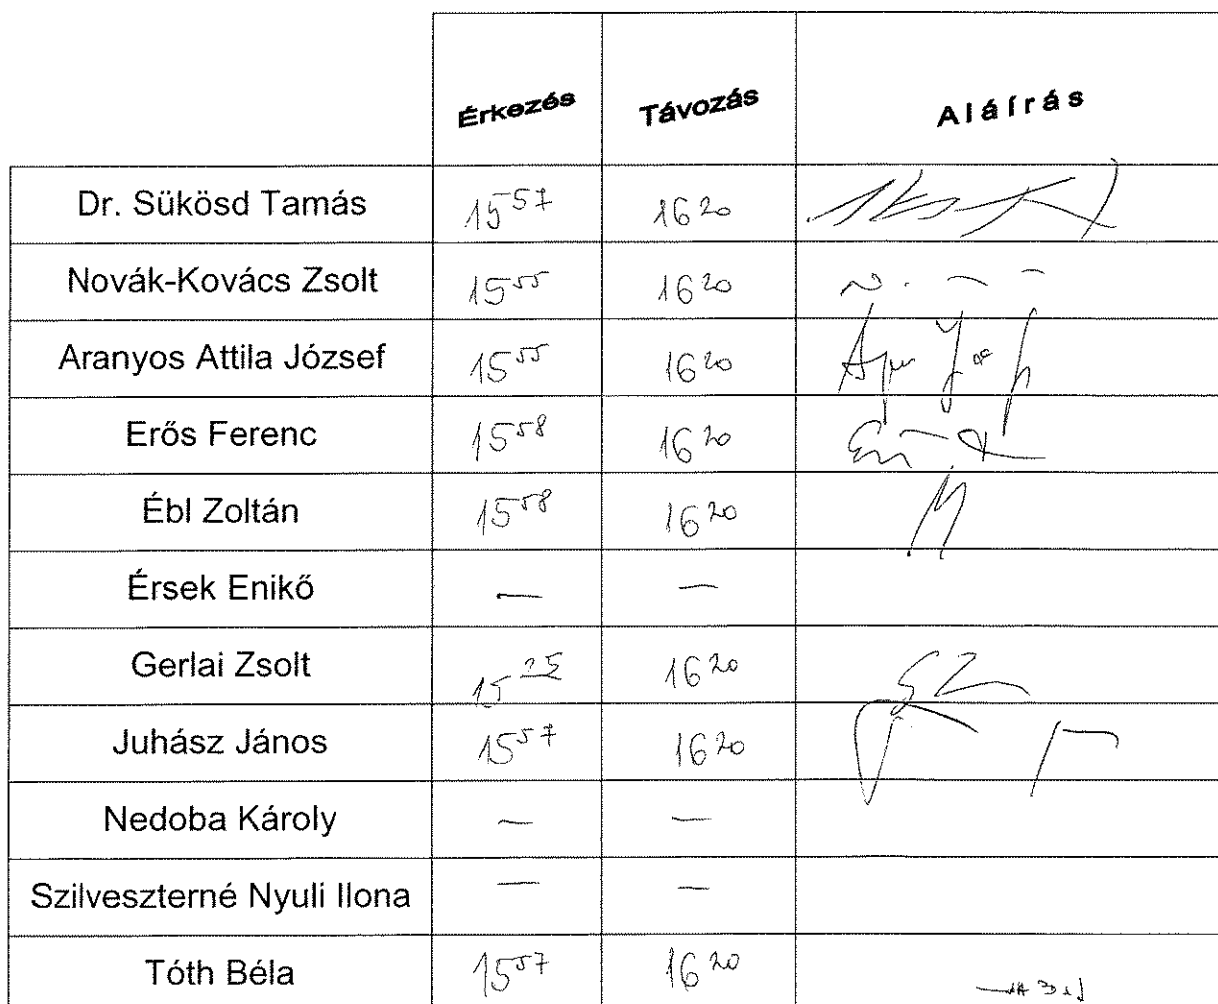 Érkezés Távozás Aláírás
Dr. Sükösd Tamás 15 57 16 20
Novák-Kovács Zsolt 15 55 16 20
Aranyos Attila József 15 55 16 20
Erős Ferenc 15 58 16 20
Ébl Zoltán 15 58 16 20
Érsek Enikő — —
Gerlai Zsolt 15 25 16 20 GZ
Juhász János 15 57 16 20
Nedoba Károly — —
Szilveszterné Nyuli Ilona — —
Tóth Béla 15 57 16 20